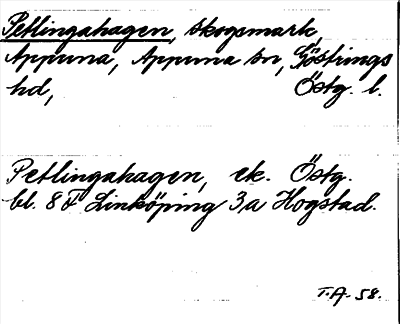 Petlingahagen, skogsmark,
Appuna, Appuna sn, Göstrings
hd, Östg. l.
Petlingahagen, ek. Östg.
bl. 8 F Linköping 3,a Hogstad.
T.A. 58.